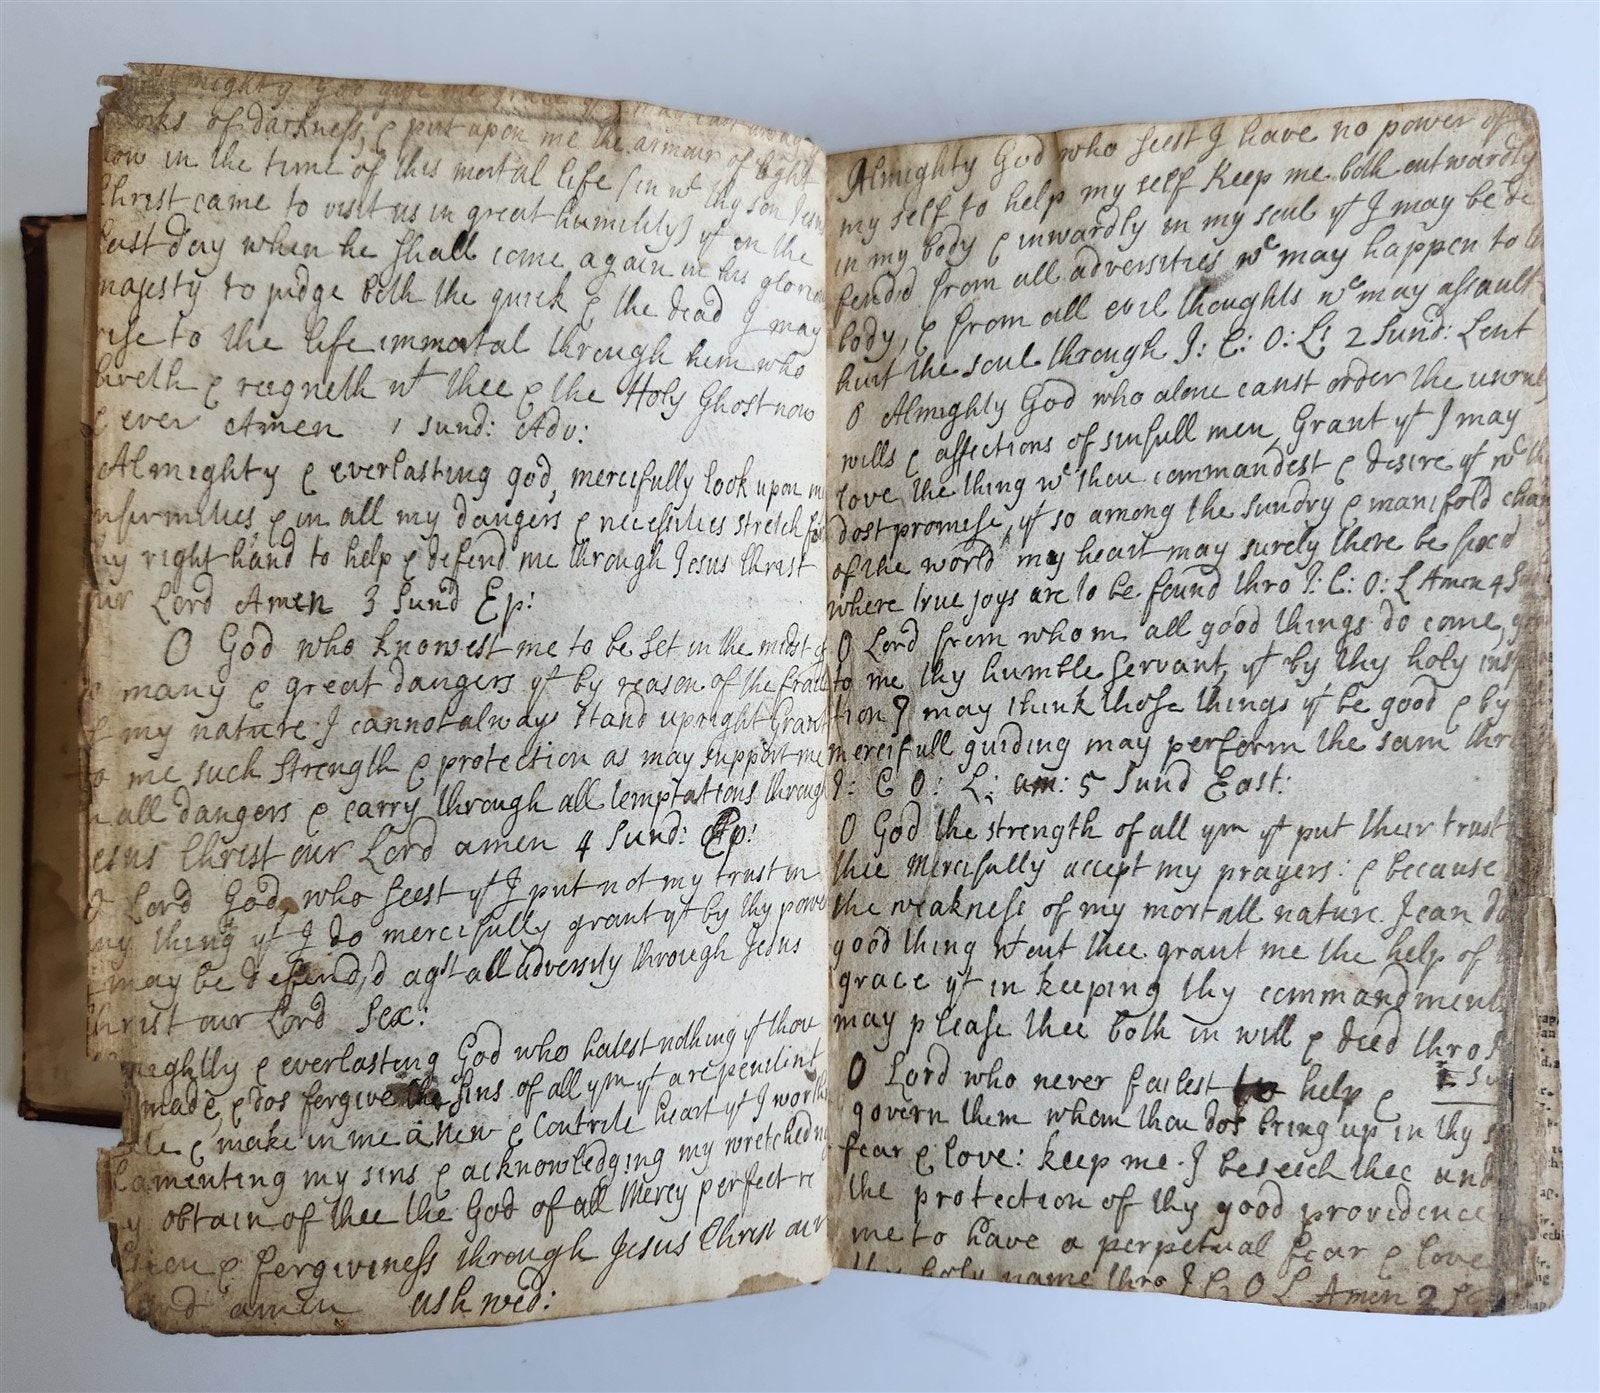 mighty God give me grace
of darkness, & put upon me the armour of light
now in the time of this mortal life (in wc thy son Jesus
Christ came to visit us in great humility) yt on the
last day when he shall come again in his glorious
majesty to judge both the quick & the dead I may
rise to the life immortal through him who
liveth & reigneth wt thee & the Holy Ghost now
& ever Amen 1 Sund: Adv:
Almighty & everlasting god, mercifully look upon my
infirmities, & in all my dangers & necessities stretch for
thy right hand to help & defend me through Jesus Christ
our Lord Amen 3 Sund Ep:
O God who knowest me to be set in the midst of
many & great dangers yt by reason of the frail
of my nature I cannot always stand upright Grant
to me such strength & protection as may support me
in all dangers & carry through all temptations through
Jesus Christ our Lord amen 4 Sund: Ep:
O Lord God, who seest yt I put not my trust in
any thing yt I do mercifully grant yt by thy power
I may be defend,d agst all adversity through Jesus
Christ our Lord Sex:
mightly & everlasting God who hatest nothing yt thou
made, & dos forgive the sins of all ym yt are penitint
& make in me a new & Contrite heart yt I worthi
lamenting my sins & acknowledging my wretchedne
obtain of thee the God of all Mercy perfect re
& forgiviness through Jesus Christ our
amen ash wed:
Almighty God who seest I have no power of
my self to help my self keep me both outwardly
in my body & inwardly in my soul yt I may be de
fend'd from all adversities wc may happen to the
body, & from all evil thoughts wc may assault &
hurt the soul through J: C: O: L: 2 Sund: Lent
O Almighty God who alone canst order the unruly
wills & affections of sinfull men, Grant yt I may
love the thing wc thou commandest & desire yt wc th
dost promise, yt so among the sundry & manifold chan
of the world my heart may surely there be fixed
where true joys are to be found thro J: C: O: L Amen 4 S
O Lord from whom all good things do come, gr
to me thy humble servant, yt by thy holy insp
tion I may think those things yt be good & by
mercifull guiding may perform the sam thro
J: C O: L: am: 5 Sund East:
O God the strength of all ym yt put their trust
thee Mercifully accept my prayers: & because
the weakness of my mortall nature I can do
good thing wtout thee grant me the help of
grace yt in keeping thy commandments
may please thee both in will & deed thro
O Lord who never failest to help &
govern them whom thou dos bring up in thy s
fear & love: keep me I beseech thee und
the protection of thy good providence
me to have a perpetual fear & love
thy holy name thro J C O L Amen 2 S